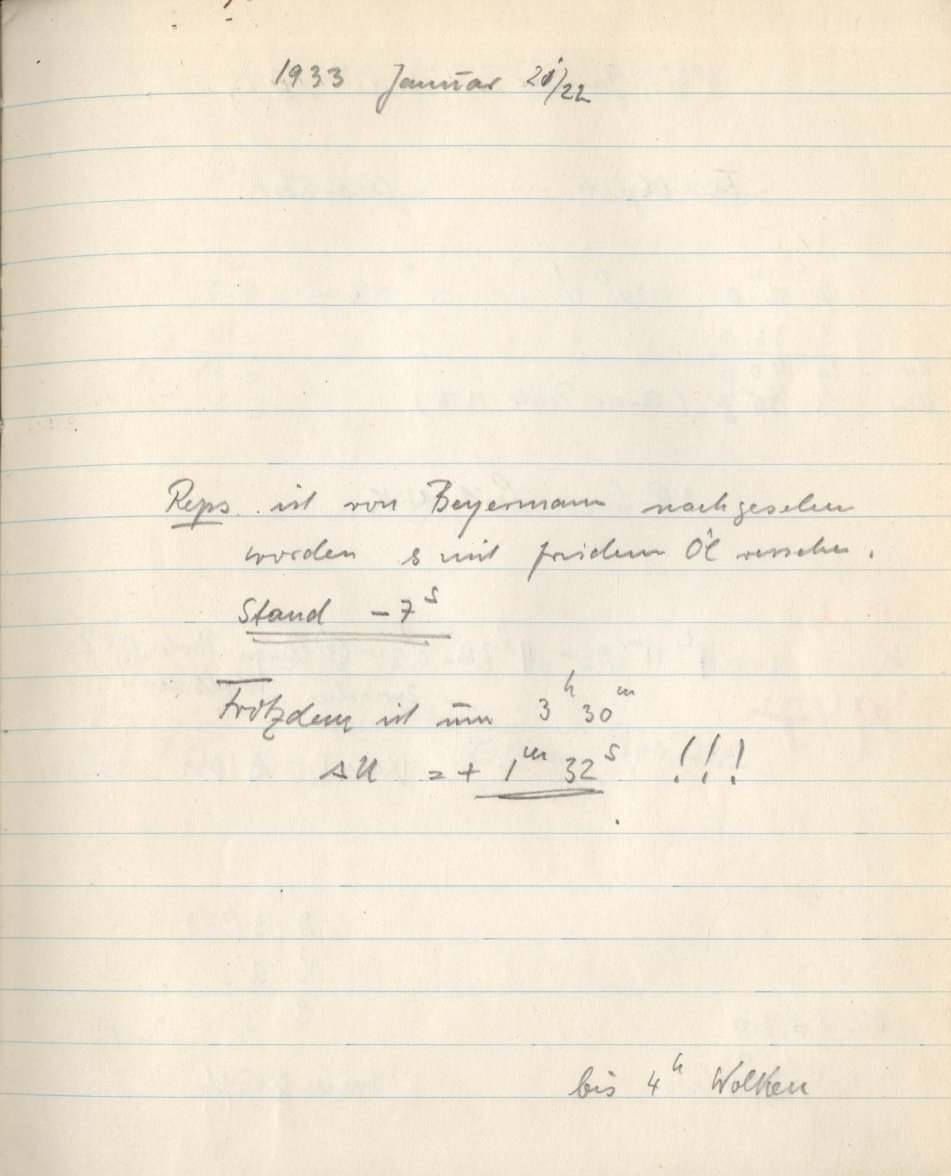 1933 Januar 21/22
Reps ist von Beyermann nachgesehen
worden & mit frischem Öl versehen.
Stand - 7ˢ
Trotzdem ist um 3ʰ 30ᵐ
ΔU = + 1ᵐ 32ˢ !!!
bis 4ʰ Wolken